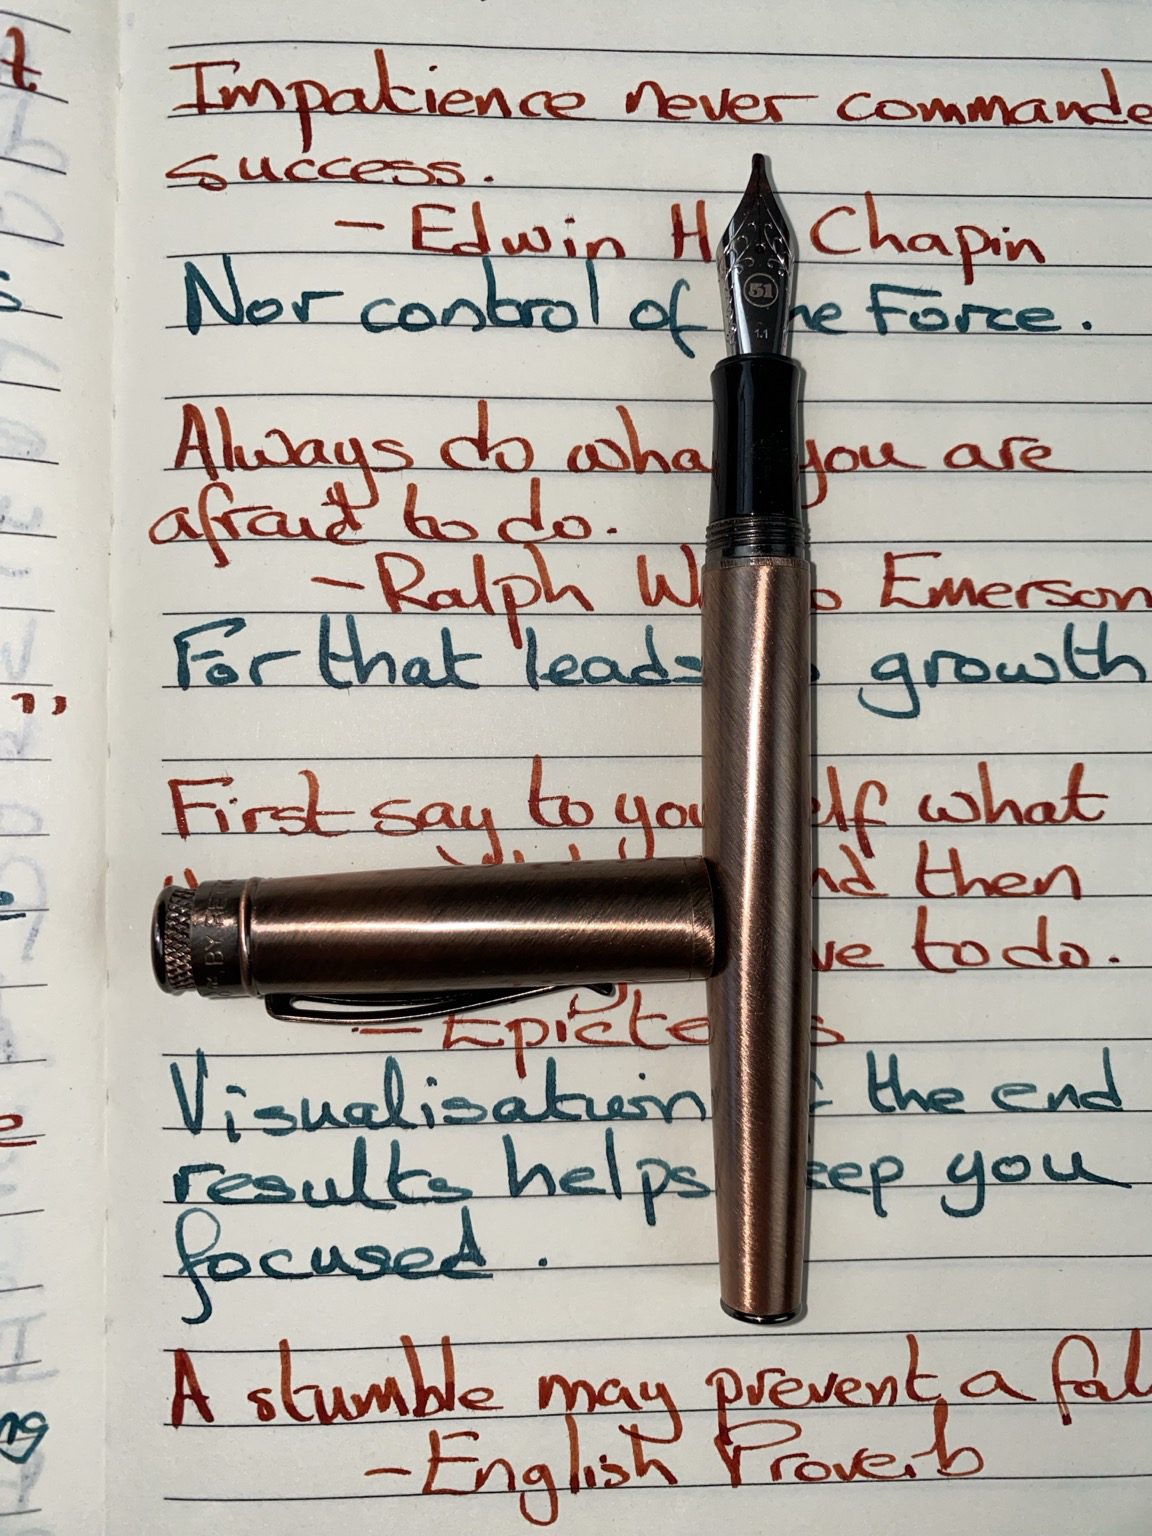 Impatience never commande
success.
- Edwin H Chapin
Nor control of he Force.
51
1.1
Always do wha you are
afraid to do.
- Ralph W o Emerson
For that leads growth
First say to you lf what
nd then
ve to do.
BY
- Epicte s
Visualisation the end
results helps eep you
focused.
A stumble may prevent a fal
- English Proverb